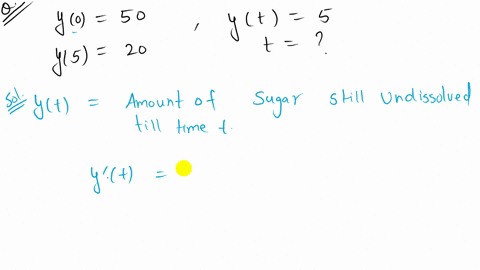 Q. y(0) = 50 , y(t) = 5
y(5) = 20 t = ?
Sol. y(t) = Amount of Sugar still Undissolved
till time t.
y'(t) =